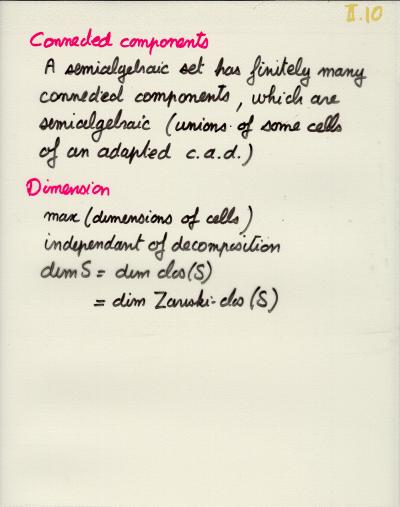 II.10
Connected components
A semialgebraic set has finitely many
connected components, which are
semialgebraic (unions of some cells
of an adapted c.a.d.)
Dimension
max (dimensions of cells)
independant of decomposition
dim S = dim clos(S)
= dim Zariski-clos (S)